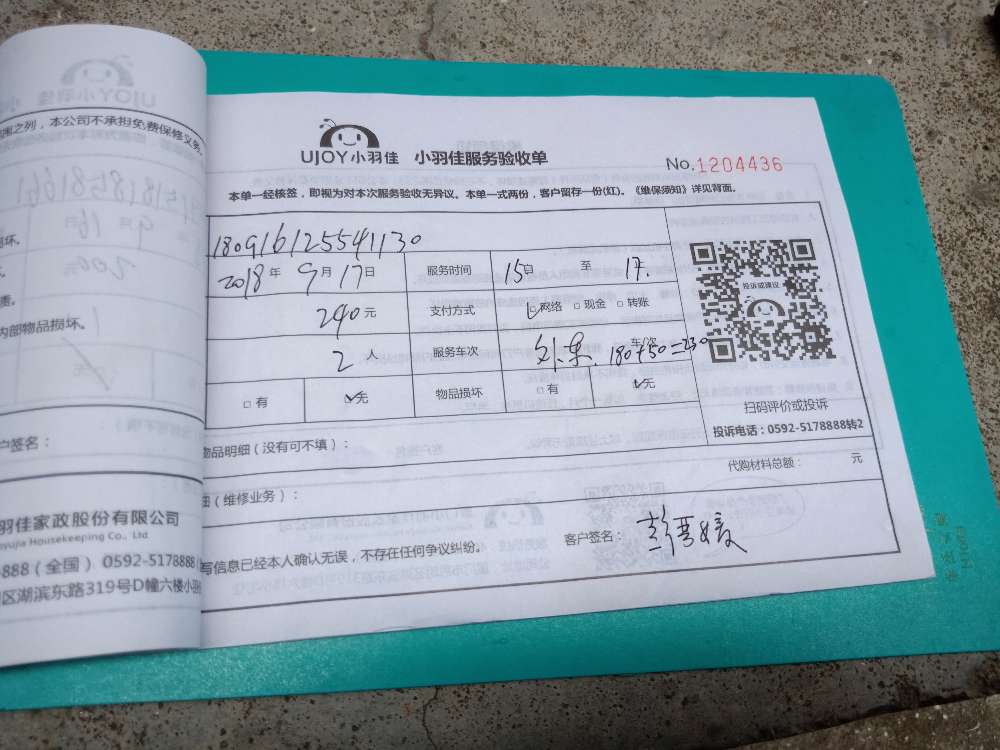 之列，本公司不承担免费保修义务。
坏。
责。
内部物品损坏。
户签名：
羽佳家政股份有限公司
yujia Housekeeping Co., Ltd.
-888（全国） 0592-5178888
区湖滨东路319号D幢六楼小羽
UJOY小羽佳 小羽佳服务验收单
No.1204436
本单一经核签，即视为对本次服务验收无异议。本单一式两份，客户留存一份(红)。《维保须知》详见背面。
180916125541130
2018年 9月17日 服务时间 15 至 17
240元 支付方式 网络 □ 现金 □ 转账
2人 服务车次 车次 180+50=230
□ 有 无 物品损坏 □ 有 无
投诉或建议
扫码评价或投诉
投诉电话：0592-5178888转2
物品明细（没有可不填）：
代购材料总额： 元
细（维修业务）：
写信息已经本人确认无误，不存在任何争议纠纷。
客户签名：